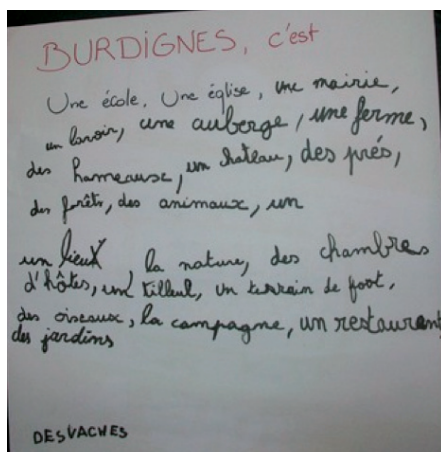 BURDIGNES, c'est
Une école, Une église, une mairie,
un lavoir, une auberge, une ferme,
des hameause, un hateau, des prés,
des forêts, des animaux, un
un lieux, la nature, des chambres
d'hôtes, un tilleul, un terrain de foot,
des oiseaux, la campagne, un restaurant
des jardins
DES VACHES